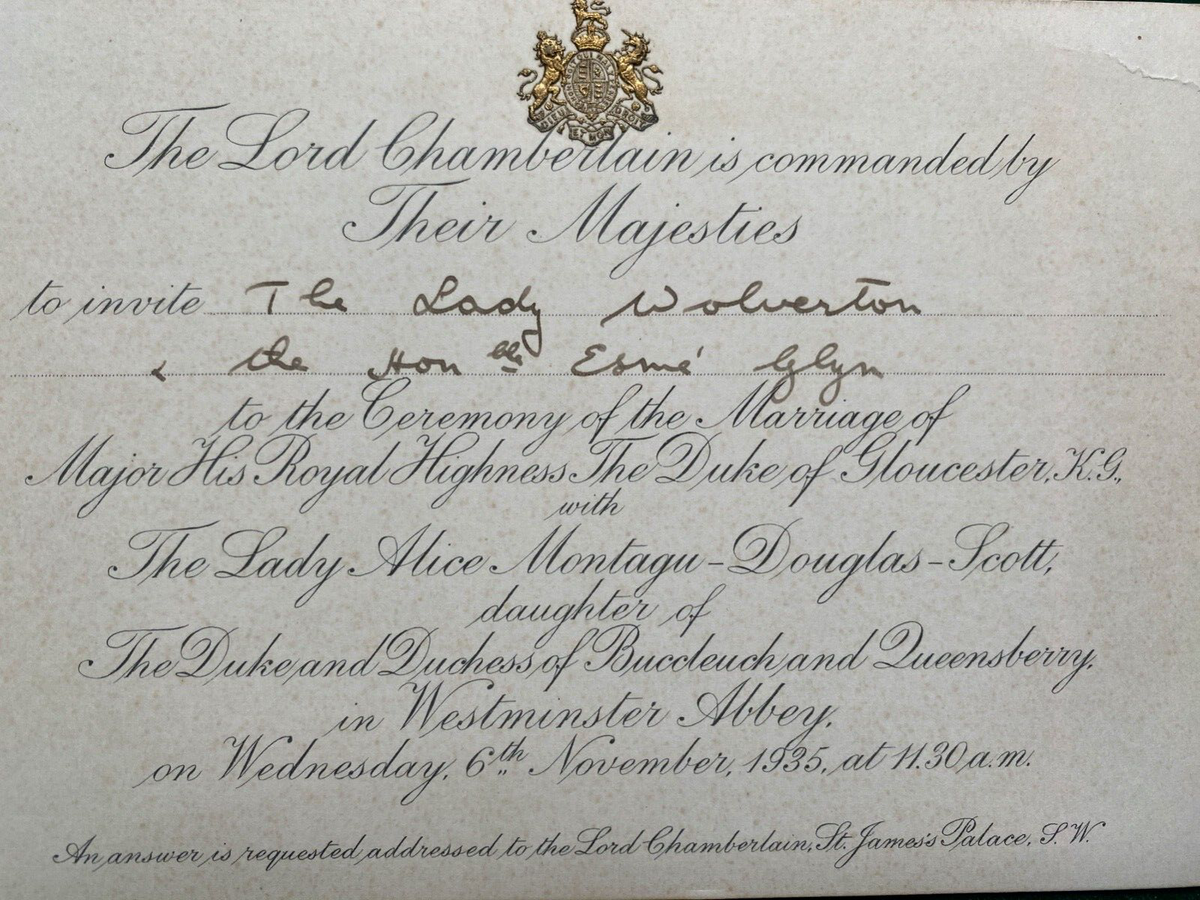 DIEU ET MON DROIT
The Lord Chamberlain is commanded by
Their Majesties
to invite The Lady Wolverton
& the Honble Esmé Glyn
to the Ceremony of the Marriage of
Major His Royal Highness The Duke of Gloucester, K.G.,
with
The Lady Alice Montagu-Douglas-Scott,
daughter of
The Duke and Duchess of Buccleuch and Queensberry,
in Westminster Abbey,
on Wednesday, 6th November, 1935, at 11.30 a.m.
An answer is requested addressed to the Lord Chamberlain, St. James's Palace, S.W.